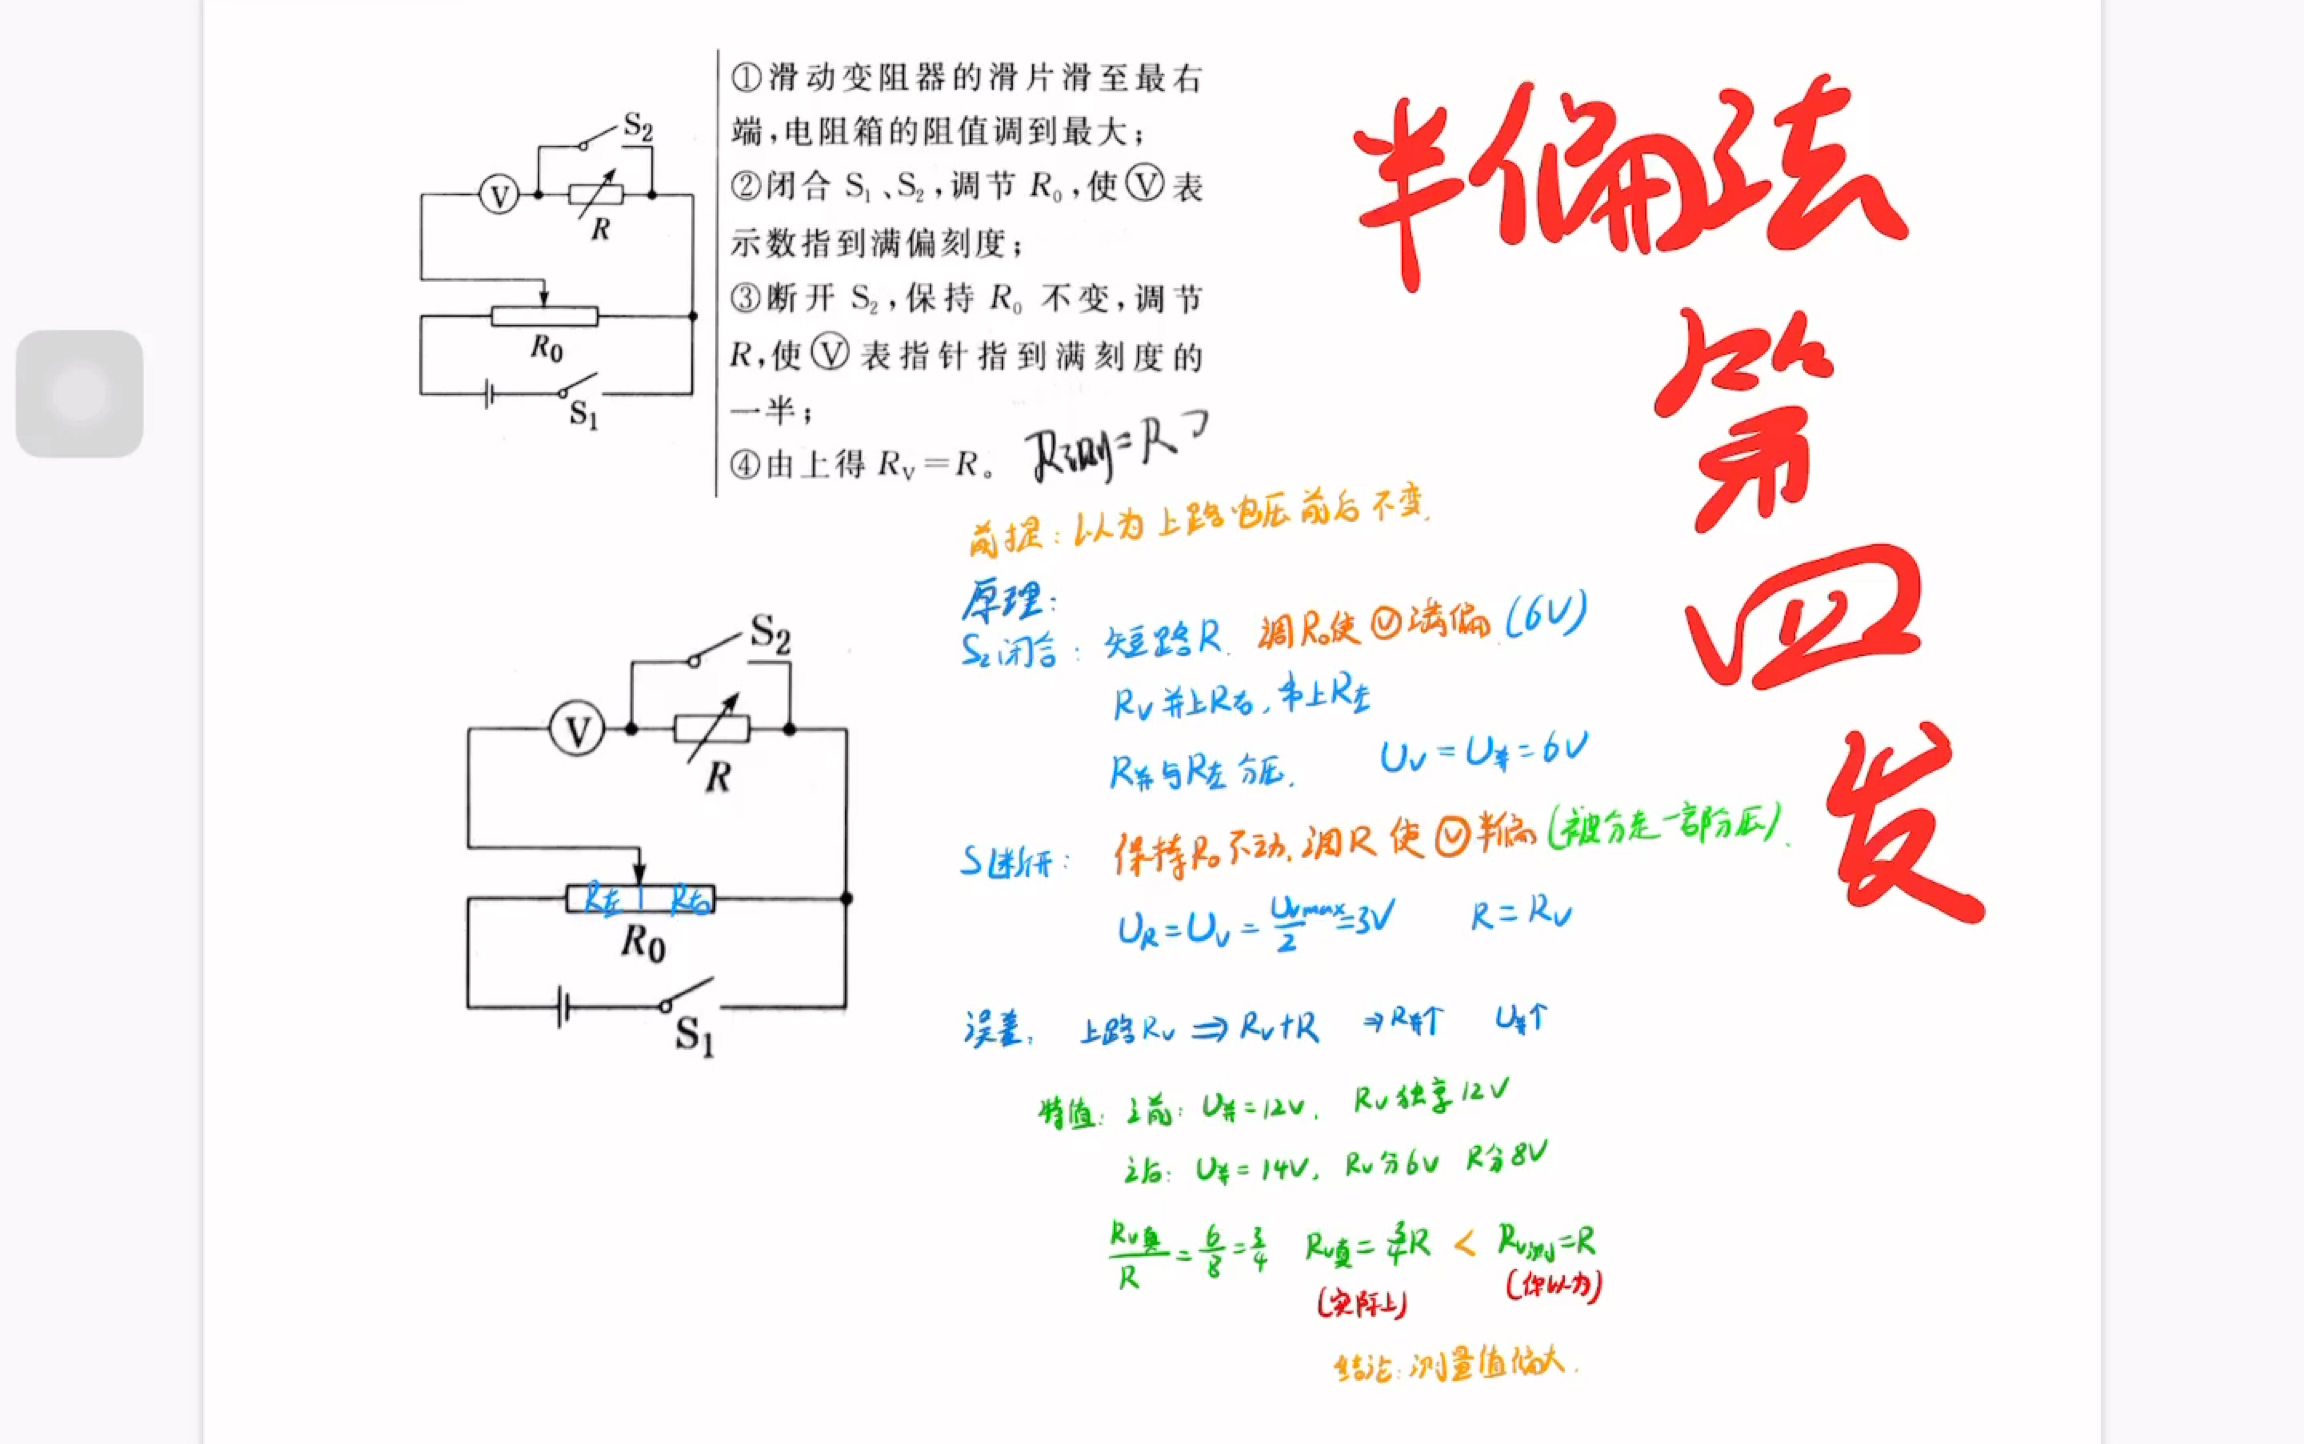 ①滑动变阻器的滑片滑至最右
端,电阻箱的阻值调到最大;
②闭合 S₁、S₂,调节 R₀,使Ⓥ表
示数指到满偏刻度;
③断开 S₂,保持 R₀ 不变,调节
R,使Ⓥ表指针指到满刻度的
一半;
④由上得 R_V=R。 R测=R
S₂
V
R
R₀
S₁
半偏法
第
四
发
前提:以为上路电压前后不变.
原理:
S₂闭合: 短路R. 调R₀使Ⓥ满偏.(6V)
Rv并上R右,串上R左
R并与R左分压. Uv=U并=6V
S₂断开: 保持R₀不动,调R使Ⓥ半偏(被分走一部分压).
U_R=U_v=Uvmax/2=3V R=Rv
误差: 上路Rv⇒Rv+R ⇒R并↑ U并↑
特值: 之前: U并=12V. Rv独享12V
之后: U并=14V, Rv分6V R分8V
Rv真/R=6/8=3/4 Rv真=3/4R < Rv测=R
(实际上) (你以为)
结论:测量值偏大.
S₂
V
R
R左 R右
R₀
S₁